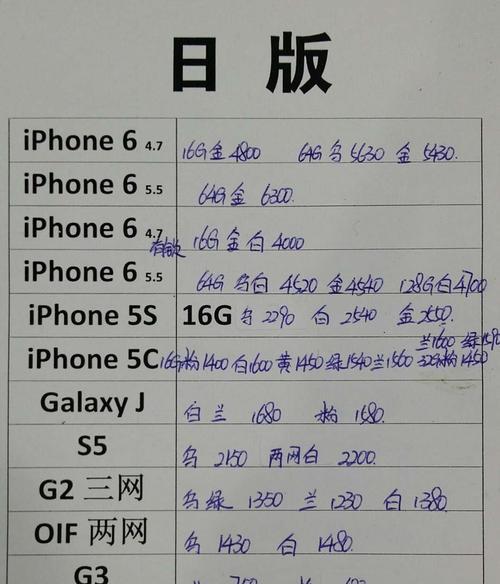 日 版
iPhone 6 4.7 16G金4800 64G乌5630 金5430.
iPhone 6 5.5 64G金 6300.
iPhone 6 4.7 16G金白4000
有锁
iPhone 6 5.5 64G 乌白4520 金4540 128G白4700
iPhone 5S 16G 乌2290 白2540 金2550.
兰1600 绿1590
iPhone 5C 16G粉1400 白1600 黄1450 绿1540 兰1560 32G粉1450
Galaxy J 白兰 1680 粉 1580.
S5 乌 2150 两网白 2200.
G2 三网 乌绿 1350 兰1230 白1380
OIF 两网 乌1430 白1480.
G3